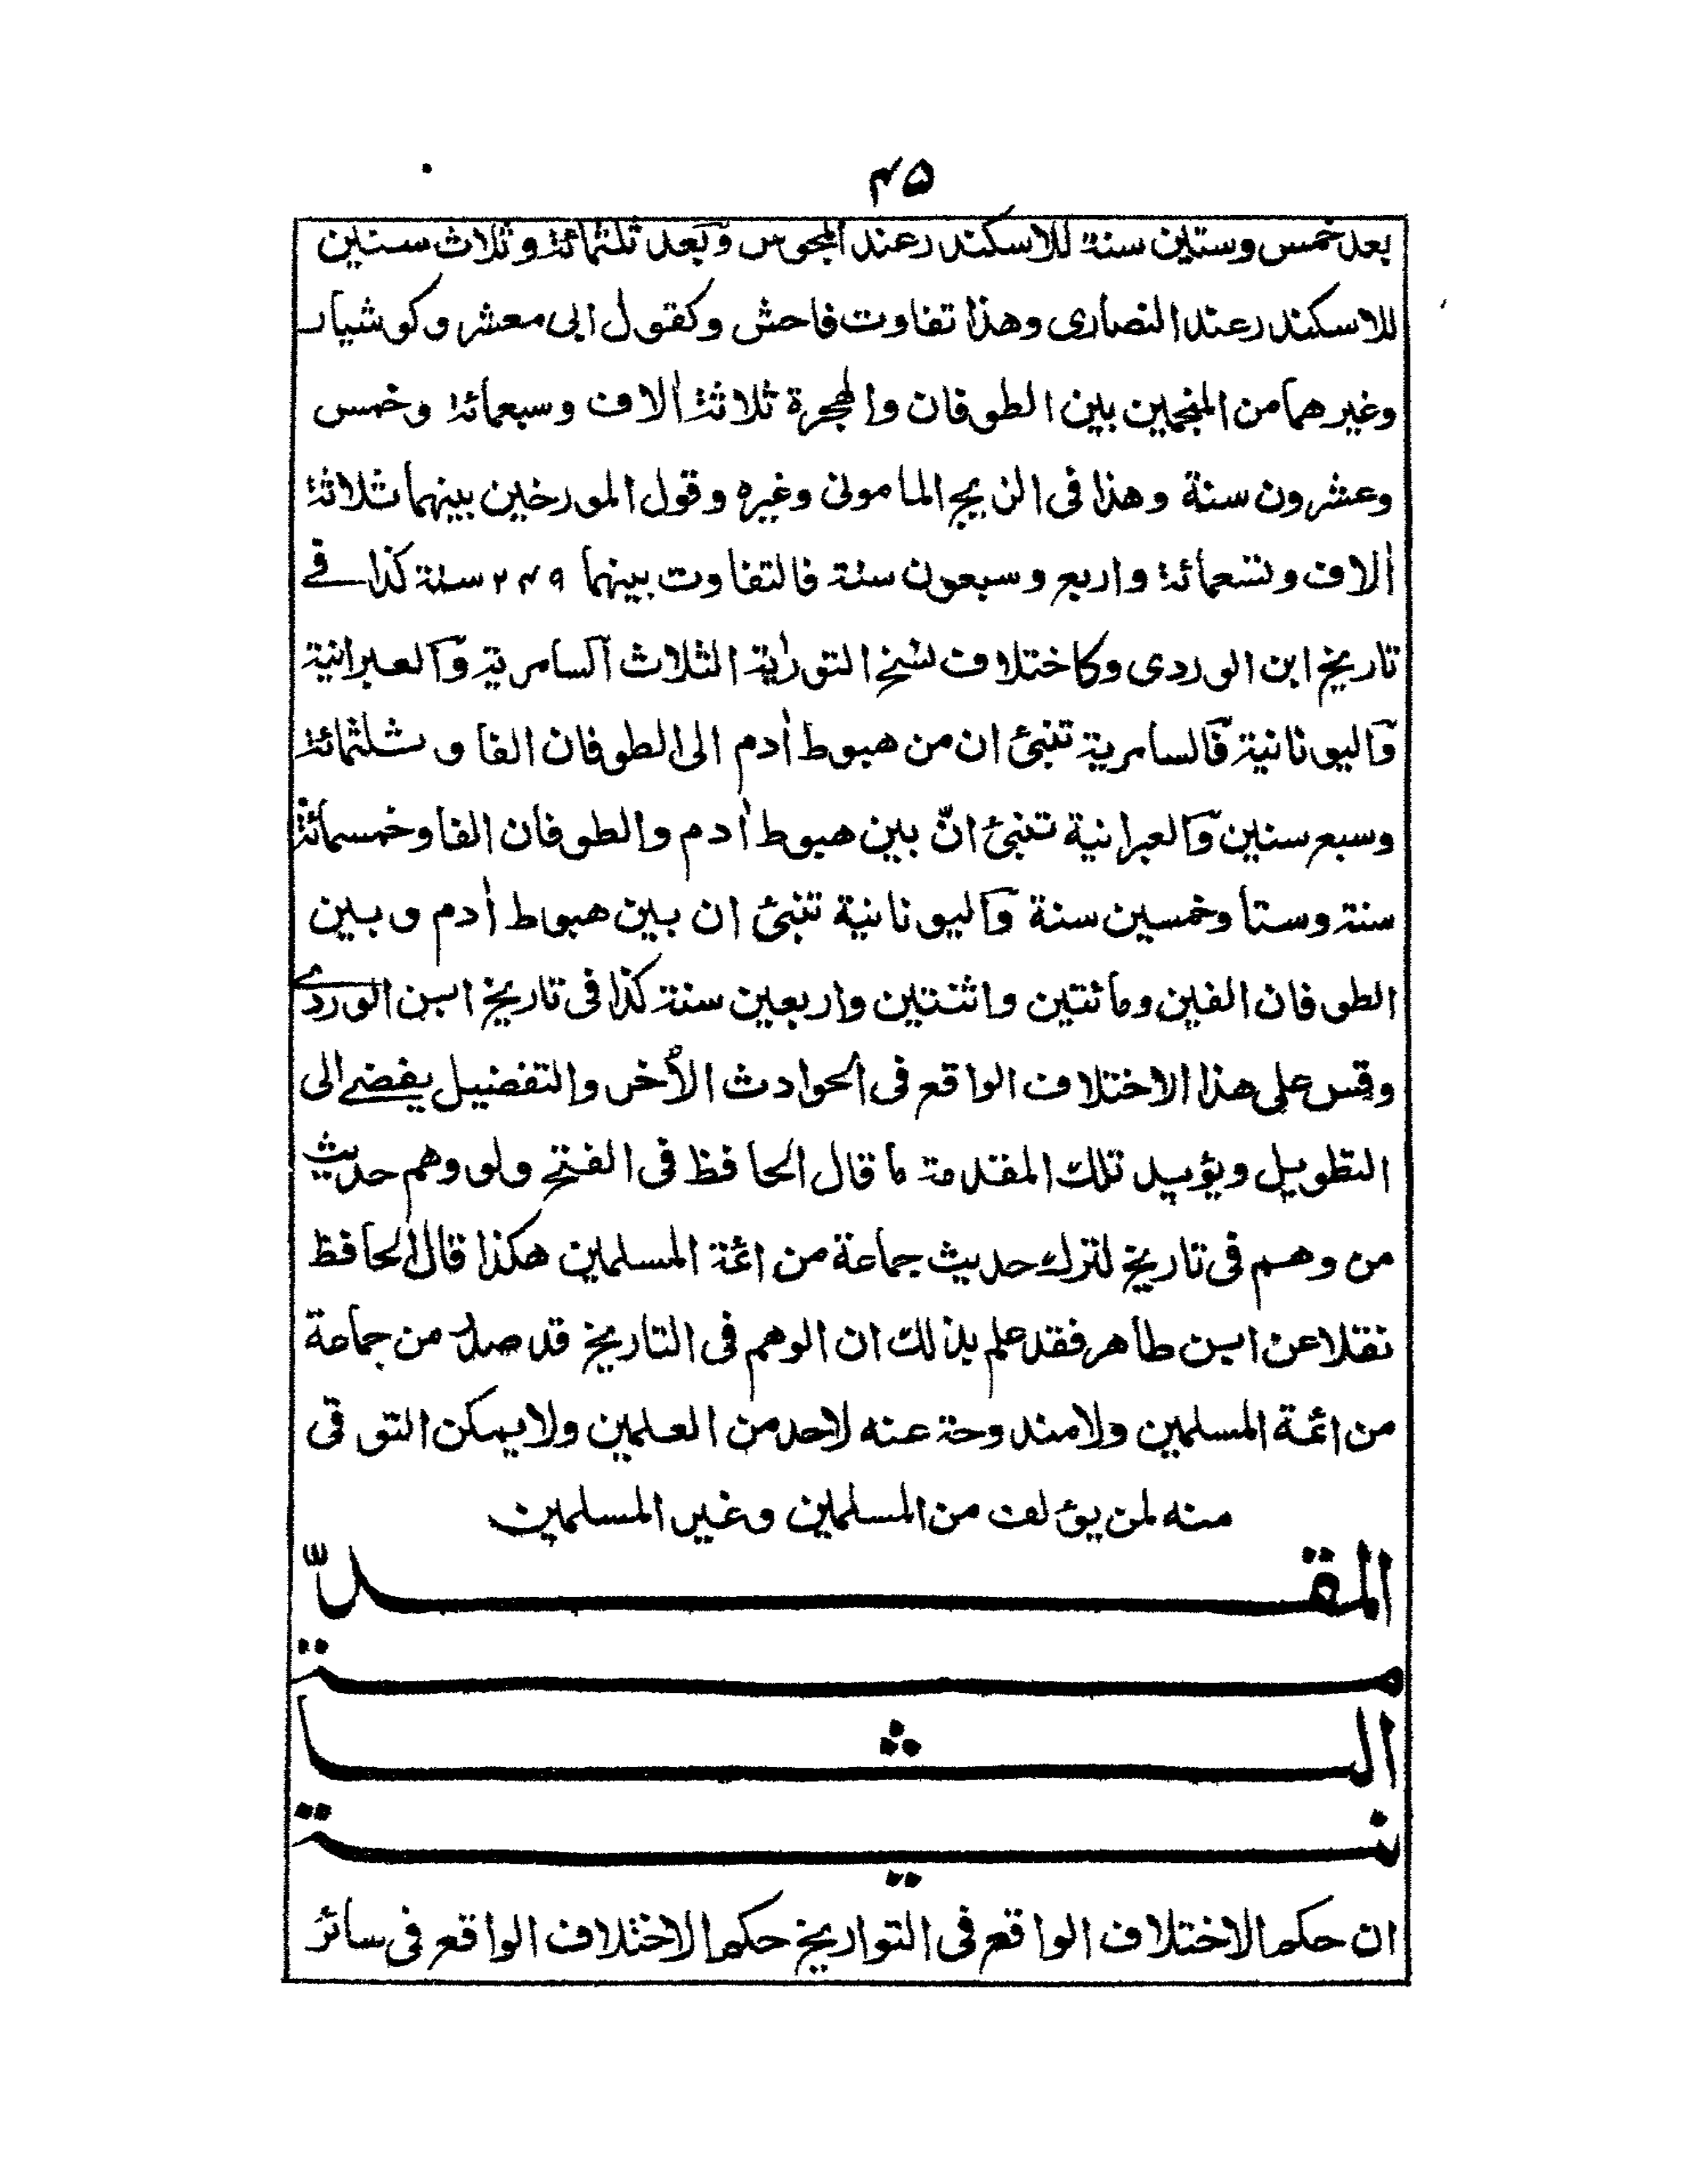 ۴۵
بعد خمس وستين سنة للاسكندر عند المجوس وبعد ثلثمائة وثلاث سنين
للاسكندر عند النصارى وهذا تفاوت فاحش وكقول ابى معشر وكوشيار
وغيرهما من المنجمين بين الطوفان والهجرة ثلاثة اٰلاف وسبعمائة وخمس
وعشرون سنة وهذا فى الزيج المامونى وغيره وقول المورخين بينهما ثلاثة
اٰلاف وتسعمائة واربع وسبعون سنة فالتفاوت بينهما ۲۴۹ سنة كذا فے
تاريخ ابن الوردى وكاختلاف نسخ التورٰية الثلاث السامرية والعبرانية
واليونانية فالسامرية تنبئ ان من هبوط اٰدم الى الطوفان الفا وثلثمائة
وسبع سنين والعبرانية تنبئ انّ بين هبوط اٰدم والطوفان الفا وخمسمائة
سنة وستا وخمسين سنة واليونانية تنبئ ان بين هبوط اٰدم وبين
الطوفان الفين ومائتين واثنتين واربعين سنة كذا فى تاريخ ابن الوردے
وقس على هذا الاختلاف الواقع فى الحوادث الأُخر والتفضيل يفضے الى
التطويل ويؤيد تلك المقدمة ما قال الحافظ فى الفتح ولو وهم حديث
من وهم فى تاريخ لترك حديث جماعة من ائمة المسلمين هكذا قال الحافظ
نقلا عن ابن طاهر فقد علم بذلك ان الوهم فى التاريخ قد صدر من جماعة
من ائمة المسلمين ولا مندوحة عنه لاحد من العلمين ولا يمكن التوقى
منه لمن يؤلف من المسلمين وغير المسلمين
المقدّ
مة
الثا
نية
ان حكم الاختلاف الواقع فى التواريخ حكم الاختلاف الواقع فى سائر